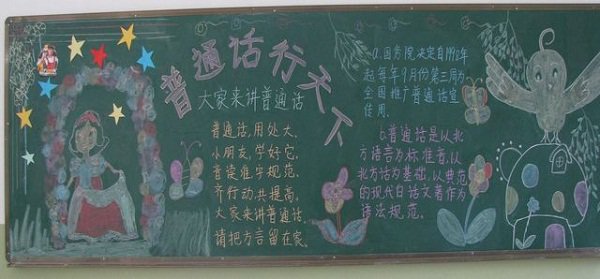 普通话行天下
大家来讲普通话
普通话,用处大,
小朋友,学好它,
音读准,字规范,
齐行动,共提高,
大家来讲普通话,
请把方言留在家.
a.国务院决定自1998年
起每年9月份第三周为
全国推广普通话宣
传周.
b.普通话是以北
方语言为标准音.以
北方话为基础.以典范
的现代白话文著作为
语法规范。